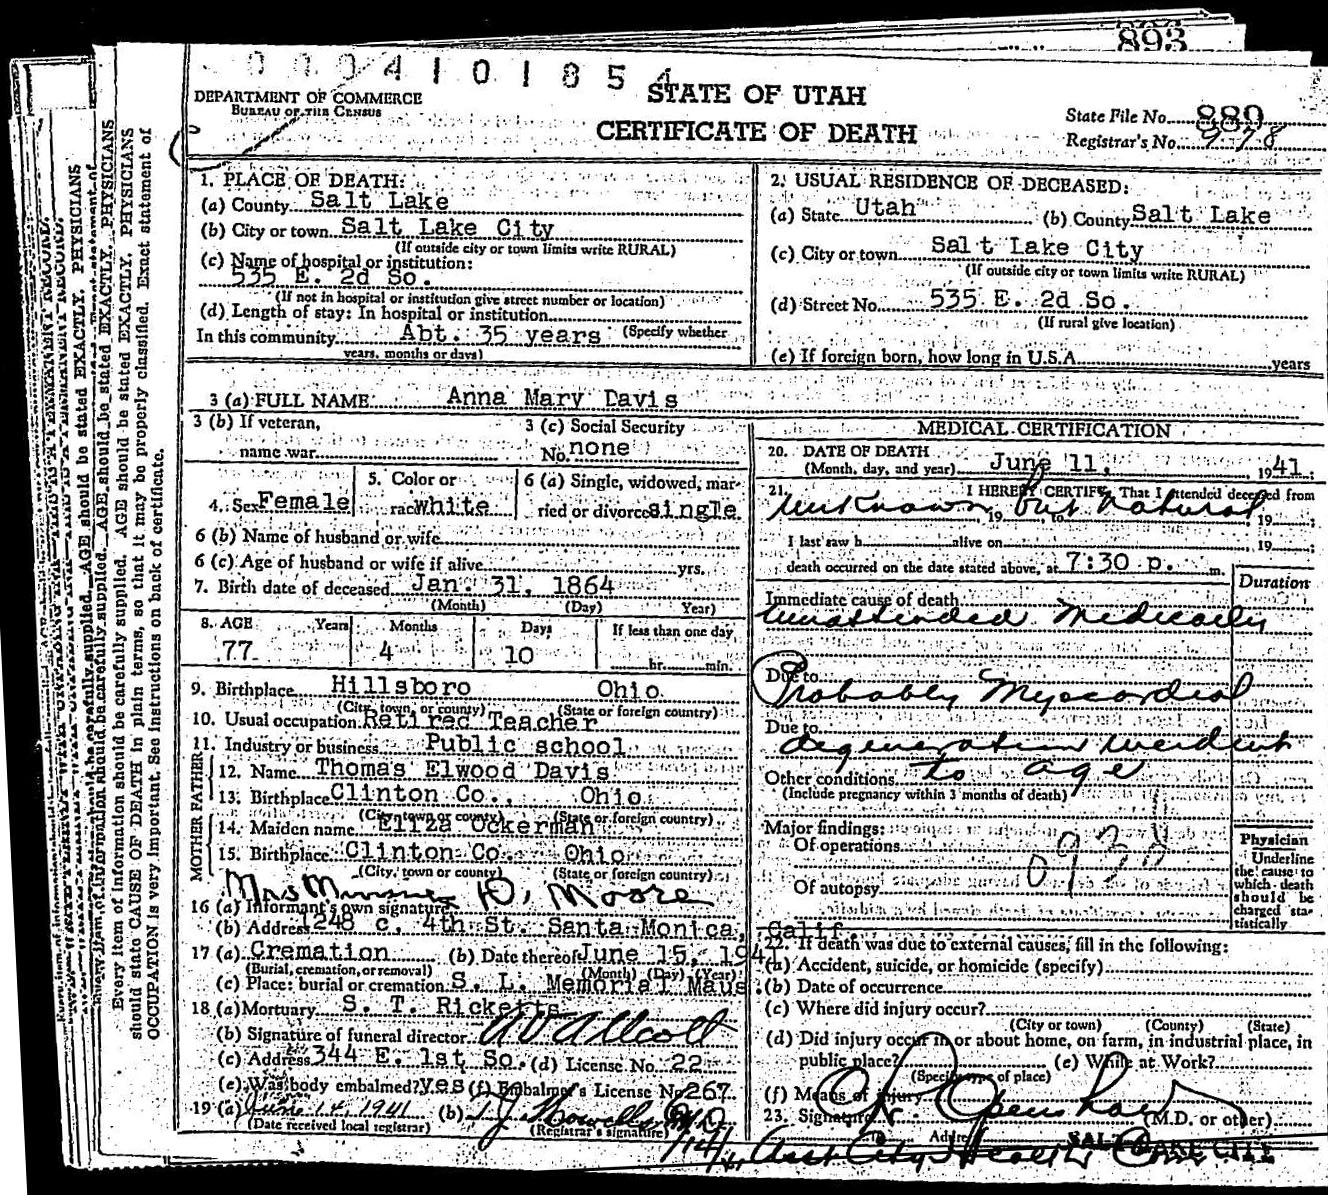 893
0 0 0 4 1 0 1 8 5 4
DEPARTMENT OF COMMERCE
BUREAU OF THE CENSUS
STATE OF UTAH
CERTIFICATE OF DEATH
State File No. 889
Registrar's No. 978
1. PLACE OF DEATH:
(a) County Salt Lake
(b) City or town Salt Lake City
(If outside city or town limits write RURAL)
(c) Name of hospital or institution:
535 E. 2d So.
(If not in hospital or institution give street number or location)
(d) Length of stay: In hospital or institution
In this community Abt. 35 years (Specify whether
years, months or days)
2. USUAL RESIDENCE OF DECEASED:
(a) State Utah (b) County Salt Lake
(c) City or town Salt Lake City
(If outside city or town limits write RURAL)
(d) Street No. 535 E. 2d So.
(If rural give location)
(e) If foreign born, how long in U.S.A. years
3 (a) FULL NAME Anna Mary Davis
3 (b) If veteran,
name war
3 (c) Social Security
No. none
4. Sex Female
5. Color or
race white
6 (a) Single, widowed, mar-
ried or divorced single
6 (b) Name of husband or wife
6 (c) Age of husband or wife if alive yrs.
7. Birth date of deceased Jan. 31, 1864
(Month) (Day) Year)
8. AGE Years Months Days If less than one day
77 4 10 hr. min.
9. Birthplace Hillsboro Ohio
(City, town, or county) (State or foreign country)
10. Usual occupation Retired Teacher
11. Industry or business Public school
FATHER
12. Name Thomas Elwood Davis
13. Birthplace Clinton Co., Ohio
(City, town or county) (State or foreign country)
MOTHER
14. Maiden name Eliza Ockerman
15. Birthplace Clinton Co. Ohio
(City, town or county) (State or foreign country)
16 (a) Informant's own signature Mrs Minnie D. Moore
(b) Address 248 c. 4th St. Santa Monica, Calif.
17 (a) Cremation (b) Date thereof June 15, 1941
(Burial, cremation, or removal) (Month) (Day) (Year)
(c) Place: burial or cremation S. L. Memorial Maus.
18 (a) Mortuary S. T. Ricketts
(b) Signature of funeral director
(c) Address 344 E. 1st So. (d) License No. 22
(e) Was body embalmed? yes (f) Embalmer's License No. 267
19 (a) June 14, 1941 (b)
(Date received local registrar) (Registrar's signature)
MEDICAL CERTIFICATION
20. DATE OF DEATH
(Month, day, and year) June 11, 1941
21. I HEREBY CERTIFY, That I attended deceased from
Unknown but Natural
19 , to 19 ;
I last saw h alive on , 19 ;
death occurred on the date stated above, at 7:30 p. m.
Duration
Immediate cause of death
Unattended Medically
Due to
Probably Myocardial
Due to
degeneration incident
Other conditions to age
(Include pregnancy within 3 months of death)
Major findings:
Of operations
Of autopsy
Physician
Underline
the cause to
which death
should be
charged sta-
tistically
22. If death was due to external causes, fill in the following:
(a) Accident, suicide, or homicide (specify)
(b) Date of occurrence
(c) Where did injury occur?
(City or town) (County) (State)
(d) Did injury occur in or about home, on farm, in industrial place, in
public place? (e) While at Work?
(Specify type of place)
(f) Means of injury
23. Signature (M.D. or other)
Address SALT LAKE CITY
Asst City Health Com
Every item of information should be carefully supplied. AGE should be stated EXACTLY. PHYSICIANS
should state CAUSE OF DEATH in plain terms, so that it may be properly classified. Exact statement of
OCCUPATION is very important. See instructions on back of certificate.